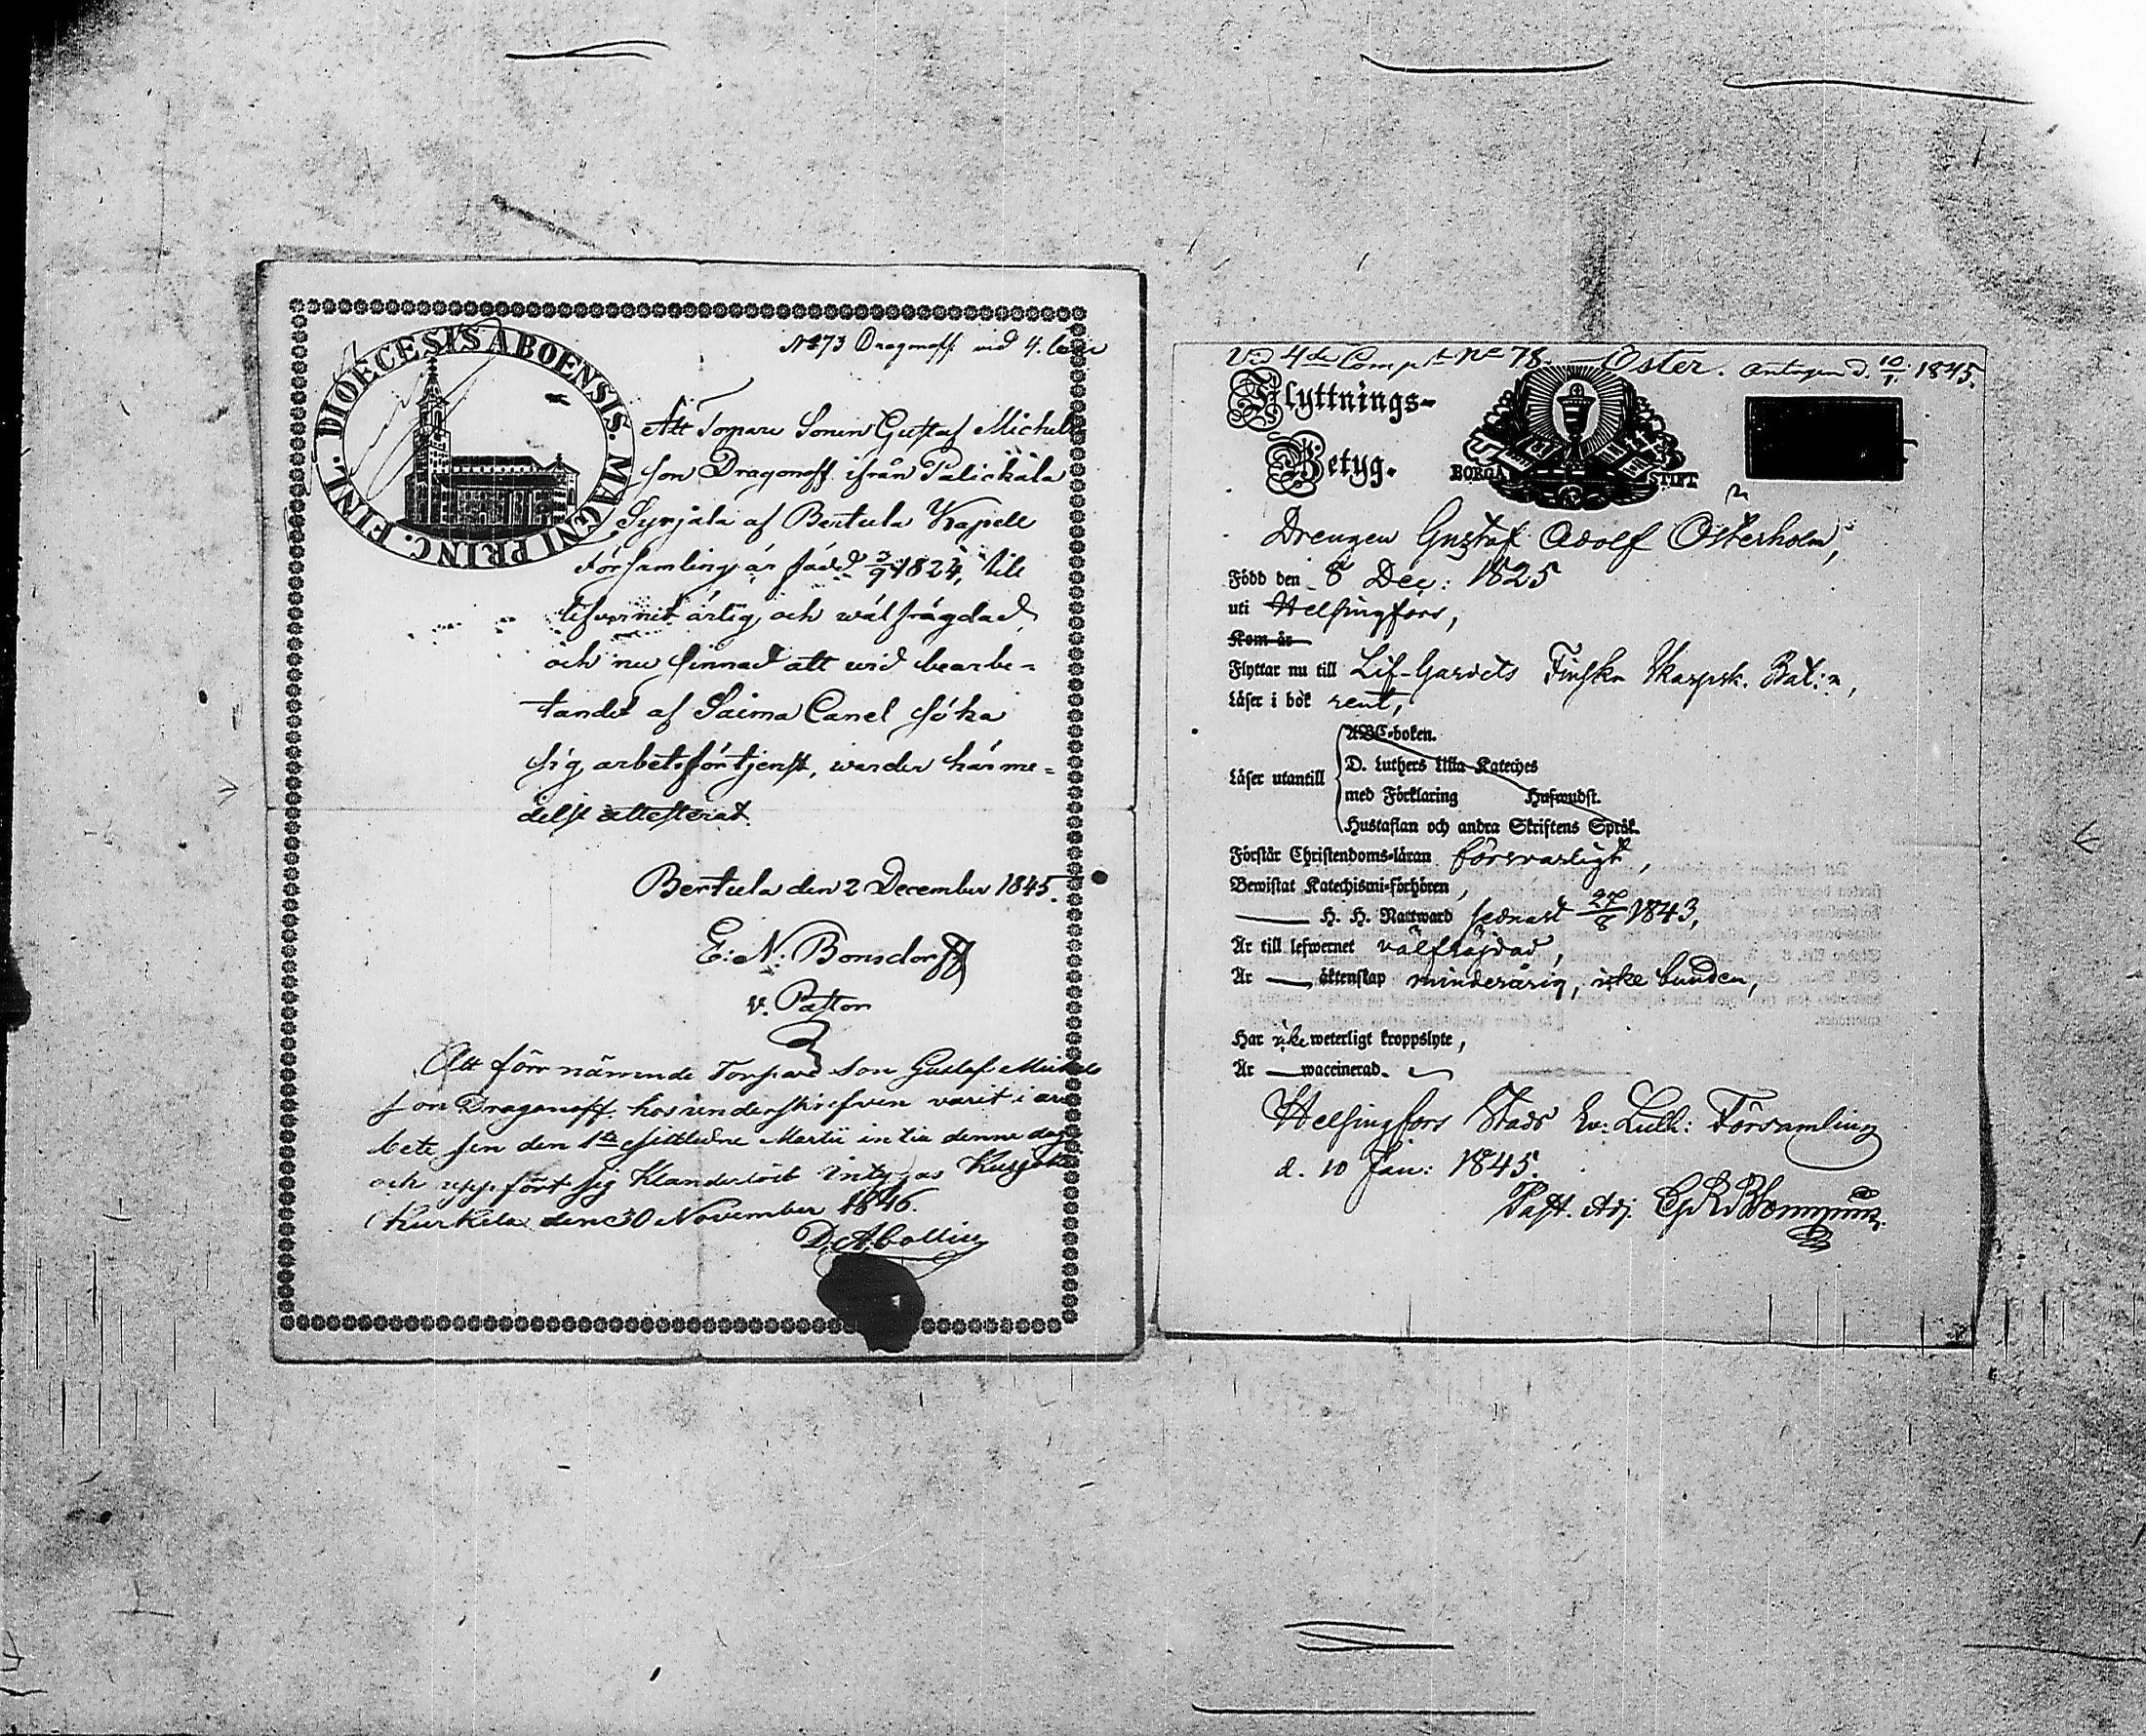 N:o 73 Dragonoff vid 4. Com
DIOECESIS ABOENSIS. MAGNI PRINC. FINL.
Att Torpare Sonen Gustaf Michels
son Dragonoff ifrån Palickäla
Syrjälä af Bertula Kapell
Församling är född 3/9 1824, till
lefvernet ärlig och wälfrägdad,
och nu sinnad att wid bearbe=
tandet af Saima Canel söka
sig arbetsförtjenst, warder härme=
delst attesterad.
Bertula den 2 December 1845.
E: N: Bonsdorff
v. Pastor
Att förrnämnde Torpare Son Gustaf Michels
son Dragonoff hos underskrifven varit i ar
bete sen den 1sta sistledne Martii in til denna dag
och uppfört sig Klanderlöst intygas
Kurkela den 30 November 1846.
D. A. Collin
Vid 4de Comp. N:o 78. Öster. antagen d. 10/1. 1845.
Flyttnings-
Betyg.
BORGÅ STIFT
Drengen Gustaf Adolf Österholm,
Född den 8 Dec: 1825
uti Helsingfors,
Kom år
Flyttar nu till Lif-Gardets Finska Skarpsk. Bat:n,
Läser i bok rent,
Läser utantill
ABC-boken.
D. Luthers lilla Kateches
med Förklaring Hufwudst.
Hustaflan och andra Skriftens Språk.
Förstår Christendoms-läran försvarligt,
Bewistat Katechismi-förhören,
— H. H. Nattward sednast 27/8 1843,
Är till lefwernet välfräjdad,
Är — äktenskap minderårig, icke bunden,
Har icke weterligt kroppslyte,
Är — waccinerad.
Helsingfors Stads Ev: Luth: Församling
d. 10 Jan: 1845.
Past. Adj.